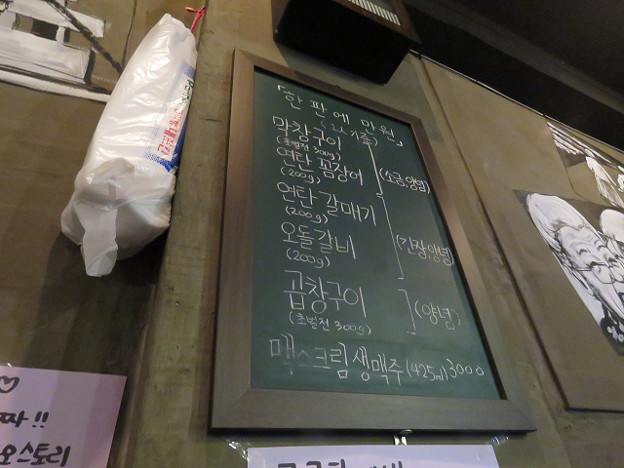 「한 판에 만원」
막창구이
(초벌전 300g)
연탄 꼼장어
(200g)
(소금,양념)
연탄 갈매기
(200g)
오돌갈비
(200g)
(간장,양념)
곱창구이
(초벌전 300g)
(양념)
맥스크림생맥주 (425ml) 3000
짜!!
오스토리